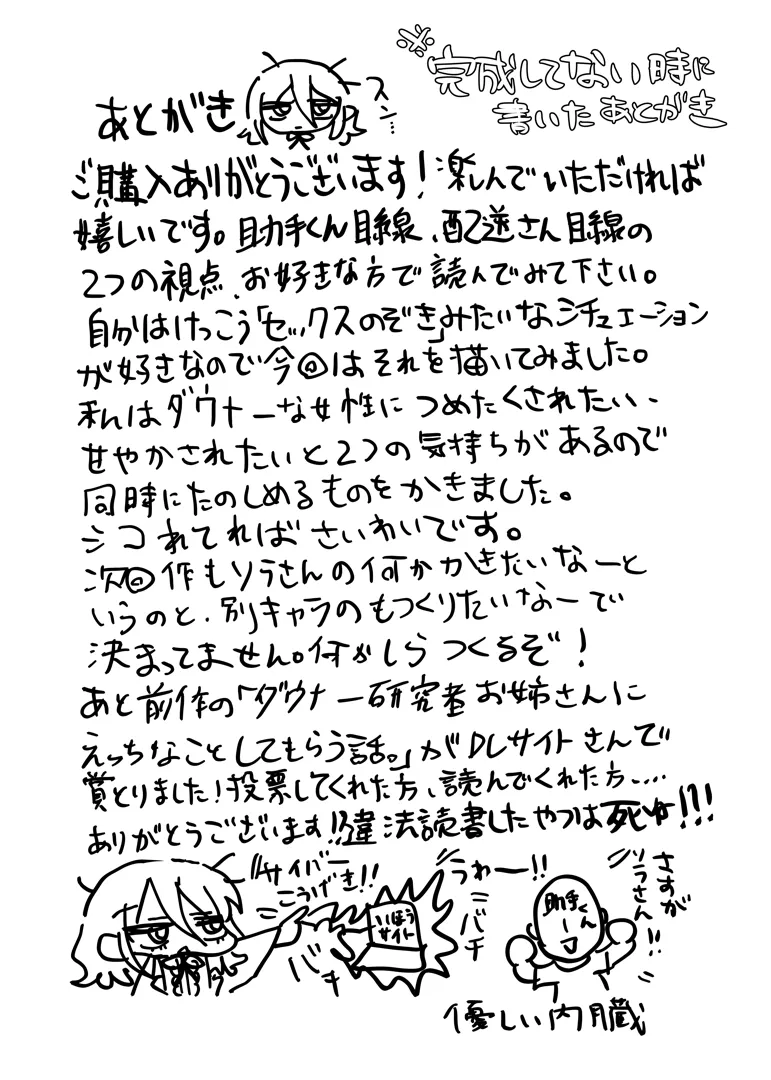 ※完成してない時に
書いたあとがき
あとがき
スン…
ご購入ありがとうございます！楽しんでいただければ
嬉しいです。助手くん目線、配送さん目線の
2つの視点、お好きな方で読んでみて下さい。
自分はけっこう「セックスのぞき」みたいなシチュエーション
が好きなので今回はそれを描いてみました。
私はダウナーな女性につめたくされたい、
甘やかされたいと2つの気持ちがあるので
同時にたのしめるものをかきました。
シコれてればさいわいです。
次回作もソラさんの何かかきたいなーと
いうのと、別キャラのもつくりたいなーで
決まってません。何かしらつくるぞ！
あと前作の「ダウナー研究者お姉さんに
えっちなことしてもらう話。」がDLサイトさんで
賞とりました！投票してくれた方、読んでくれた方、…
ありがとうございます!!違法読書したやつは死ね!!!
サイバー
こうげき!!
バキ
いほう
サイト
うわー!!
バチ
助手くん
さすが
ソラさん!!
優しい内臓